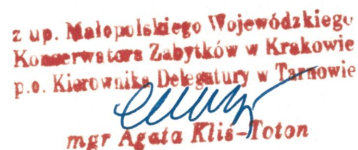 z up. Małopolskiego Wojewódzkiego
Konserwatora Zabytków w Krakowie
p.o. Kierownika Delegatury w Tarnowie
mgr Agata Klis-Toton